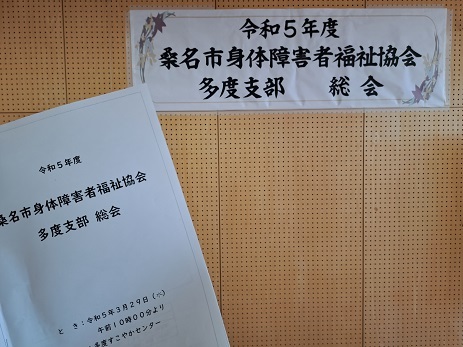 令和５年度
桑名市身体障害者福祉協会
多度支部　総会
令和５年度
桑名市身体障害者福祉協会
多度支部 総会
と き：令和５年３月２９日（水）
午前１０時００分より
多度すこやかセンター